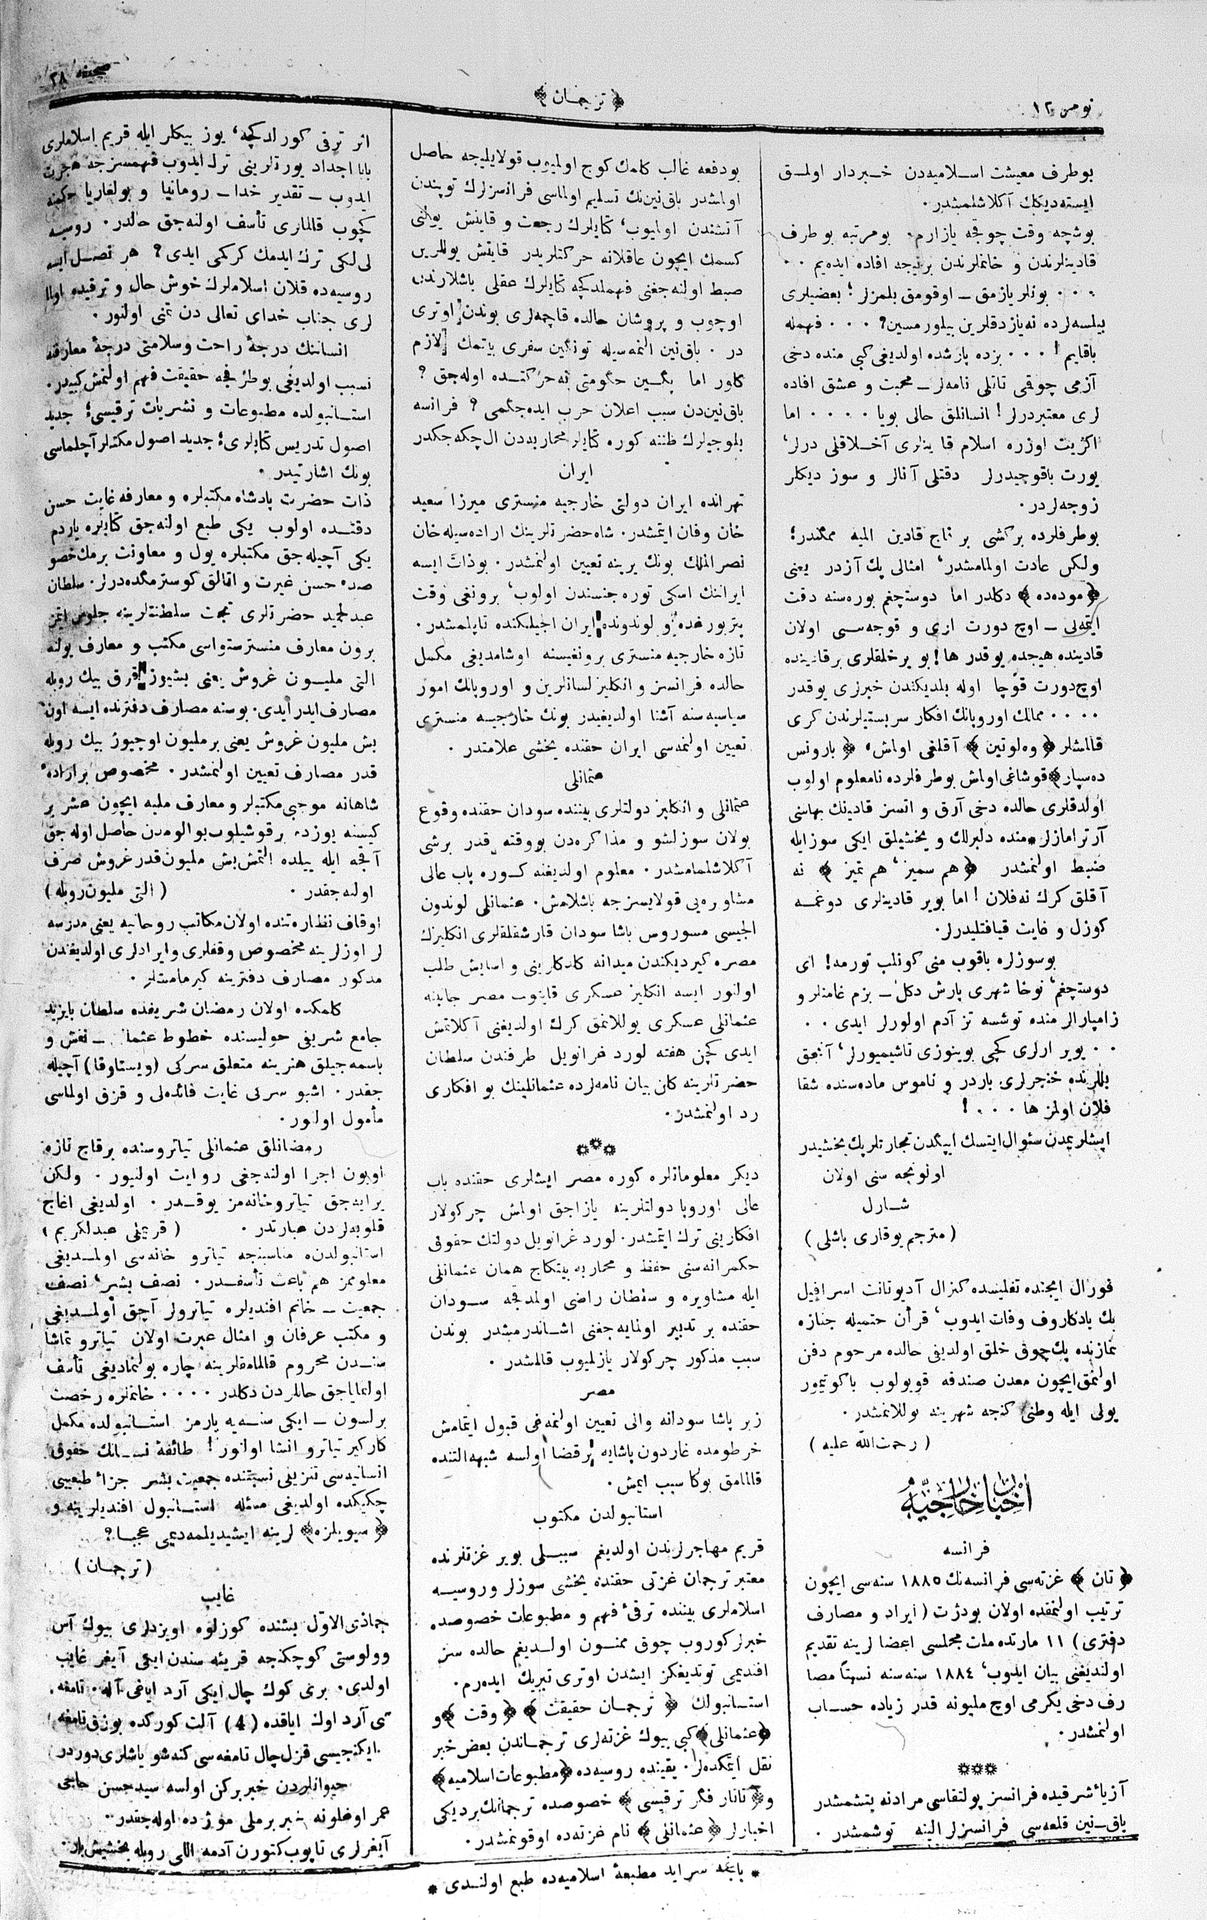 نومر ١٢
﴿ ترجمان ﴾
صحیفه ٢٨
بوطرف معیشت اسلامیه‌دن خبردار اولمق
ایسته‌دیکك آکلاشلمشدر.
بوشجه وقت چوقجه یازارم. بومرتبه بوطرف
قادینلرندن و خانملرندن برنیجه افاده ایده‌یم ..
... بونلر یازمق ــ اوقومق بلمزلر! بعضیلری
بیلسه‌لرده نه‌یازدقلرین بیلورمسین؟ ... فهمله
باقایم! ... بزده پازشده اولدیغی کبی منده دخی
آزمی چوقمی تاتلی نامه‌لر ــ محبت و عشق افاده
لری معتبردرلر! انسانلق حالی بویا .... اما
اکثریت اوزره اسلام قادینلری آخلاقلی درلر،
یورت باقوچیدرلر دقتلی آنالر و سوز دیکلر
زوجه‌لردر.
بوطرفلرده برکشی برقاچ قادین المیه ممکندر؛
ولکن عادت اولمامشدر، امثالی پك آزدر یعنی
﴿ موده‌ده ﴾ دکلدر اما دوستچغم بوره‌سنه دقت
ایتمه‌لی ــ اوچ دورت اری و قوجه‌سی اولان
قادینده هیچده یوقدر ها! بو یرخلقلری برقادینده
اوچ دورت قوجا اوله بلدیکندن خبرلری یوقدر
.... ممالك اوروپانك افکار سربستیلرندن کری
قالمشلر ﴿ وه‌لوتین ﴾ آقلغی اولمش، ﴿ بارونس
ده‌سپار ﴾ قوشاغی اولمش بوطرفلرده نامعلوم اولوب
اولدقلری حالده دخی آرق و انسز قادینك بهاسی
آرترامازلر. منده دلبرلك و یخشیلق ایکی سوزایله
ضبط اولنمشدر ﴿ هم سمیز، هم تمیز ﴾ نه
آقلق کرك نه‌فلان! اما بویر قادینلری دوغمه
کوزل و غایت قیافتلیدرلر.
بوسوزلره باقوب منی کونلب تورمه! ای
دوستچغم، نوخا شهری پارش دکل ــ بزم غامنلر و
زامپارالر منده توشسه تز آدم اولورلر ایدی ..
.. بویر ارلری کچی بوینوزی تاشیمیورلر، آنجق
بللرنده خنجرلری باردر و ناموس ماده‌سنده شقا
فلان اولمز ها ...!
ایشلریمدن سئوال ایتسك ایپکدن تجارتلر پك یخشیدر
اولونجه سنی اولان
شارل
( مترجم یوقاری باشلی )
فورال ایچنده تفلیسده کنرال آدیوتانت اسرافیل
بك یادکاروف وفات ایدوب، قرأن حتمیله جنازه
نمازنده پك چوقی خلق اولدیغی حالده مرحوم دفن
اولنمق ایچون معدن صندقه قویولوب باکوتیمور
یولی ایله وطنی کنجه شهرینه یوللانمشدر.
( رحمت‌الله علیه )
اخبار خارجیه
فرانسه
﴿ تان ﴾ غزته‌سی فرانسه‌نك ١٨٨٥ سنه‌سی ایچون
ترتیب اولنمقده اولان بودژت ( ایراد و مصارف
دفتری ) ١١ مارتده‌ملت مجلسی اعضالرینه تقدیم
اولندیغنی بیان ایدوب، ١٨٨٤ سنه‌سنه نسبتاً مصا
رف دخی یکرمی اوچ ملیونه قدر زیاده حساب
اولنمشدر.
⁂
آزیاء شرقیده فرانسز پولتقاسی مرادنه یتشمشدر
باق‌نین قلعه‌سی فرانسزلر الینه توشمشدر.
بودفعه غالب کلمك کوچ اولمیوب قولایلیجه حاصل
اولمشدر باق‌نین‌نك تسلیم اولماسی فرانسزلرك توپندن
آتشندن اولمیوب، کتایلرك رجعت و قایتش یولنی
کسمك ایچون عاقلانه حرکتلریدر قایتش یوللرین
ضبط اولنه‌جغنی فهمله‌دکچه کتایلرك عقلی باشلارندن
اوچوب و پروشان حالده قاچمه‌لری بوندن اوتری
در. باق‌نین النمه‌سیله تونکین سفری بیتمك لازم
کلور اما پکین حکومتی نه‌حرکتده اوله‌جق؟
باق‌نین‌دن سبب اعلان حرب ایده‌جکمی؟ فرانسه
بلموجیلرك ظننه کوره کتایلر محاربه‌دن ال چکه‌جکدر
ایران
تهرانده ایران دولتی خارجیه منستری میرزا سعید
خان وفات ایتمشدر. شاه حضرتلرینك اراده‌سیله خان
نصرالملك بونك یرینه تعیین اولنمشدر. بوذات ایسه
ایراننك اسکی توره جنسندن اولوب، برونغی وقت
پتربورغده و لوندونده ایران ایلچیلکنده تاپلمشدر.
تازه خارجیه منستری برونغیسنه اوشامدیغی مکمل
حالده فرانسز و انکلیز لسانلرین و اوروپانك امور
سیاسیه‌سنه آشنا اولدیغیدر بونك خارجیه منستری
تعیین اولنمه‌سی ایران حقنده یخشی علامتدر.
عثمانلی
عثمانلی و انکلیز دولتلری بیننده سودان حقنده وقوع
بولان سوزلشو و مذاکره‌دن بووقته قدر برشی
آکلاشلمامشدر. معلوم اولدیغنه کوره باب عالی
مشاوره‌یی قولایسزجه باشلامش. عثمانلی لوندون
الچیسی مسوروس پاشا سودان قارشقلقلری انکلیزك
مصره کیردیکندن میدانه کلدکلرینی و اسایش طلب
اولنور ایسه انکلیز عسکری قایتوب مصر جانبنه
عثمانلی عسکری یوللانمق کرك اولدیغنی آکلاتمش
ایدی کچن هفته لورد غرانویل طرفندن سلطان
حضرتلرینه کلن بیان نامه‌لرده عثمانلینك بو افکاری
رد اولنمشدر.
⁂
دیکر معلوماتلره کوره مصر ایشلری حقنده باب
عالی اوروپا دولتلرینه یازاجق اولمش چرکولار
افکارینی ترك ایتمشدر. لورد غرانویل دولتك حقوق
حکمرانه‌سنی حفظ و محاربه بیتکاج همان عثمانلی
ایله مشاویره و سلطان راضی اولمدقجه سودان
حقنده بر تدبیر اولنمایه‌جغنی اشاندرمشدر بوندن
سبب مذکور چرکولار یازلمیوب قالمشدر.
مصر
زبر پاشا سودانه والی تعیین اولنمه‌غی قبول ایتمامش
خرطومده غاردون پاشایه برقضا اولسه شبهه‌التنده
قالمامق بوکا سبب ایمش.
استانبولدن مکتوب
قریم مهاجرلرندن اولدیغم سببلی بویر غزتلرنده
معتبر ترجمان غزتی حقنده یخشی سوزلر و روسیه
اسلاملری بیننده ترقیء فهم و مطبوعات خصوصده
خبرلر کوروب چوق ممنون اولدیغم حالده سز
افندیمی توتدیغکز ایشدن اوتری تبریك ایده‌رم.
استانبولك ﴿ ترجمان حقیقت ﴾ ﴿ وقت ﴾ و
﴿ عثمانلی ﴾ کبی بیوك غزته‌لری ترجماندن بعض خبر
نقل ایتمکده‌لر. یقینده روسیه‌ده ﴿ مطبوعات اسلامیه ﴾
و ﴿ تاتار فکر ترقیسی ﴾ خصوصده ترجمانك بردیکی
اخبارلر ﴿ عثمانلی ﴾ نام غزته‌ده اوقونمشدر.
اثر ترقی کورلدکچه، یوز بیکلر ایله قریم اسلاملری
بابا اجداد یورتلرینی ترك ایدوب فهمسزجه هجرت
ایدوب ــ تقدیر خدا ــ رومانیا و بولغاریا حکمنه
کچوب قالمالری تأسف اولنه‌جق حالدر. روسیه
لی‌لکی ترك ایدمك کرکمی ایدی؟ هر نصل ایسه
روسیه‌ده قلان اسلاملرك خوش حال و ترقیده اوالما
لری جناب خدای تعالی دن تمنی اولنور.
انساننك درجهٔ راحت وسلامتی درجهٔ معارفنه
نسبب اولدیغی بوطرفجه حقیقت فهم اولنمش کبیدر.
استانبولده مطبوعات و نشریات ترقیسی؛ جدید
اصول تدریس کتابلری؛ جدید اصول مکتبلر آچلماسی
بونك اشارتیدر.
ذات حضرت پادشاه مکتبلره و معارفه غایت حسن
دقتده اولوب یکی طبع اولنه‌جق کتابلره یاردم
یکی آچیله‌جق مکتبلره یول و معاونت برمك خصو
صده حسن غیرت و اقالق کوسترمکده‌درلر. سلطان
عبدلحمید حضرتلری تخت سلطنتلرینه جلوس ایتمز
برون معارف منسترستواسی مکتب و معارف یولنه
التی ملیون غروش یعنی بشیوز قرق بیك روبله
مصارف ایدر ایدی. بوسنه مصارف دفترنده ایسه اون
بش ملیون غروش یعنی برملیون اوچیوز بیك روبله
قدر مصارف تعیین اولنمشدر. مخصوص براراده
شاهانه موجبی مکتبلر و معارف ملیه ایچون عشر بر
کیسنه یوزده برقوشیلوب بوالومدن حاصل اوله‌جق
آقجه ایله ییلده التمش‌بش ملیون‌قدر غروش صرف
اولنه‌جقدر. ( التی ملیون روبله )
اوقاف نظارتنده اولان مکاتب روحانیه یعنی مدرسه
لر اوزلرینه مخصوص وقفلری و ایرادلری اولدیغندن
مذکور مصارف دفترینه کیرمامشلر.
کلمکده اولان رمضان شریفده سلطان بایزید
جامع شریفی حولیسنده خطوط عثما ــ نقش و
باسمه‌جیلق هنرینه متعلق سرکی ( ویستاوقا ) آچیله
جقدر. اشبو سرکی غایت فائده‌لی و قزق اولماسی
مأمول اولنور.
رمضانلق عثمانلی تیاتروسنده برقاچ تازه
اویون اجرا اولنه‌جغی روایت اولنیور. ولکن
برایه‌جق تیاتروخانه‌مز یوقدر. اولدیغی اغاج
قلوبه‌لردن عبارتدر. ( قریملی عبدلکریم )
استانبولده مناسبجه تیاترو خانه‌سی اولمدیغی
معلومز هم باعث تأسفدر. نصف بشر، نصف
جمعیت ــ خانم افندیلره تیاترولر آچق اولمدیغی
و مکتب عرفان و امثال عبرت اولان تیاترو تماشا
سندن محروم قالمامقلرینه چاره بولنمادیغی تأسف
اولنمایاجق حاللردن دکلدر .... خانملره رخصت
برلسون ــ ایکی سنه‌یه یارمز استانبولده مکمل
کارکیر تیاترو انشا اولنور! طائفهٔ نسانك حقوق
انسانیه‌سی تنزیلی نسبتنده جمعیت بشر جزاء طبیعیی
چکیکده اولدیغی مسئله استانبول افندیلرینه و
﴿ سیویلزه ﴾ لرینه ایشیدیلمه‌دیمی عجبا؟..
( ترجمان )
غایب
جماذی‌الاول بشنده کوزلوه اویزدلری بیوك آس
وولوستی کوچکنجه قریئه سندن ایکی آیغر غایب
اولدی. بری کوك چال ایکی آرد ایاغی آله. تامغه
سی آرد اوك ایاقده (4) آلت کورکده بوزق تامغه
ایکنجیسی قزل چال تامغه‌سی کنه‌شو یاشلری دورددر
حیوانلردن خبر برکن اولسه سید حسن حاجی
عمر اوغلونه خبر برملی موژده اوله‌جقدر.
آیغرلری تاپوب کتورن آدمه اللی روبله بخشیش بار.
* باغچه سرایده مطبعهٔ اسلامیه‌ده طبع اولندی *